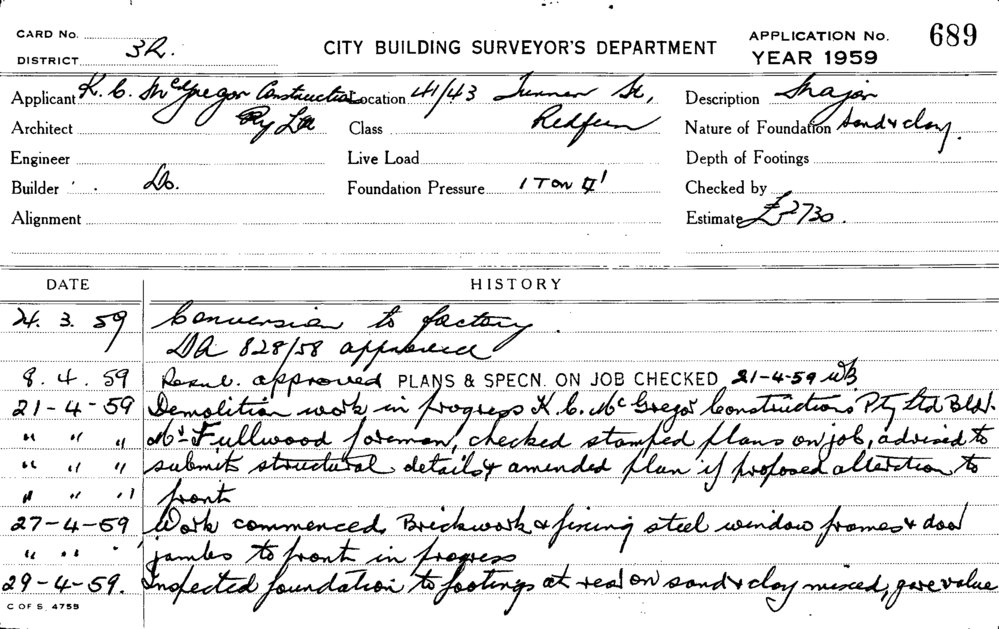 CARD No.
DISTRICT 3R.
CITY BUILDING SURVEYOR'S DEPARTMENT
APPLICATION No. 689
YEAR 1959
Applicant K. C. McGregor Construction Location 41/43 Turner St, Description Major
Architect Pty Ltd Class Redfern Nature of Foundation Sand & clay.
Engineer Live Load Depth of Footings
Builder Do. Foundation Pressure 1 Ton Checked by
Alignment Estimate £2730.
DATE HISTORY
24. 3. 59 Conversion to factory.
DA 828/58 approved
8. 4. 59 approved PLANS & SPECN. ON JOB CHECKED 21-4-59
21-4-59 Demolition work in progress K. C. McGregor Constructions Pty Ltd Bld.
" " " Mr Fullwood foreman, checked stamped plans on job, advised to
" " " submit structural details & amended plan if proposed alteration to
" " " front
27-4-59 Work commenced. Brickwork & fixing steel window frames & door
" " " jambs to front in progress
29-4-59. Inspected foundation to footings at rear on sand & clay mixed, gave value
C OF S. 4755